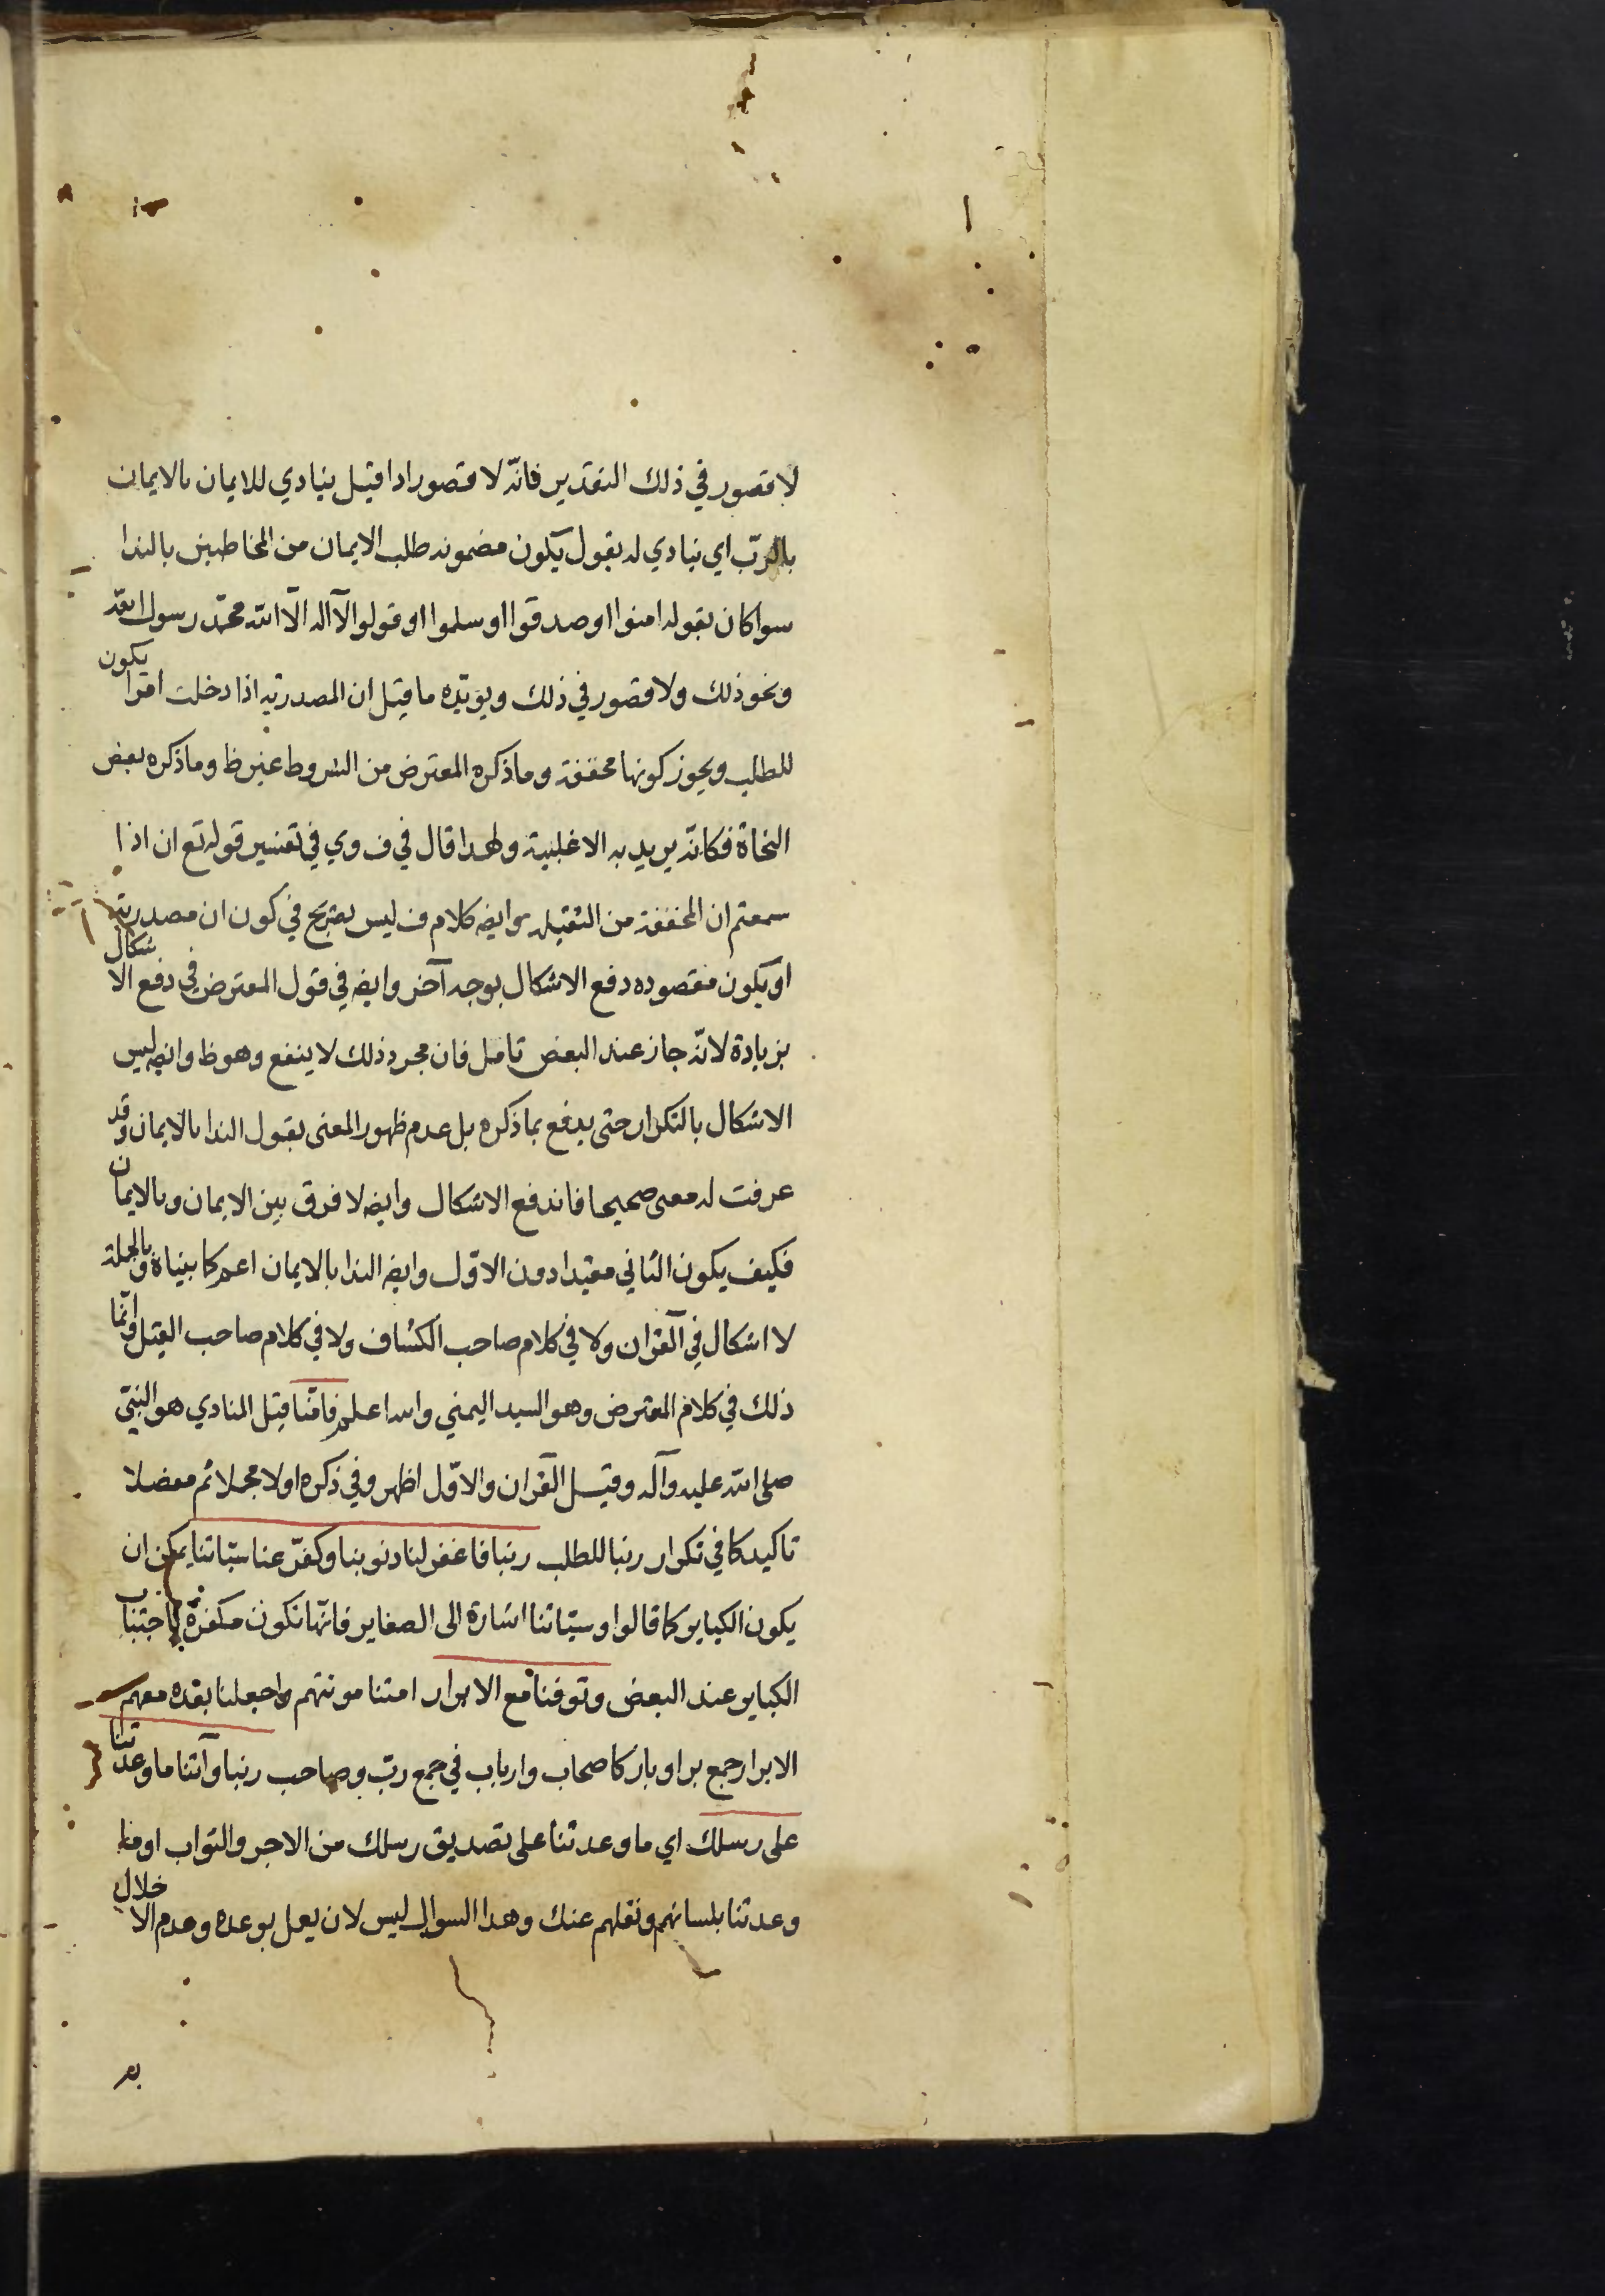 لا قصور في ذلك التقدير فانّه لا قصور اذا قيل ينادي للايمان بالايمان
بالربّ اي ينادي له بقول يكون مضمونه طلب الايمان من المخاطبين بالندا
سوا كان بقوله امنوا او صدقوا او سلموا او قولوا لا اله الّا الله محمّد رسول الله
ونحو ذلك ولا قصور في ذلك ويؤيّده ما قيل ان المصدريه اذا دخلت امرا يكون
للطلب ويجوز كونها مخففة وما ذكره المعترض من الشروط غير ظ وما ذكره بعض
النحاة فكانّه يريد به الاغلبية ولهذا قال في ف وي في تفسير قوله تع ان اذا
سمعتم ان المخففة من الثقيله وايضه كلام ف ليس بصريح في كون ان مصدرية
او يكون مقصوده دفع الاشكال بوجه آخر وايضه في قول المعترض في دفع الاشكال
بزيادة لانّه جاز عند البعض تامل فان مجرد ذلك لا ينفع وهو ظ وايضه ليس
الاشكال بالتكرار حتى يدفع بما ذكره بل عدم ظهور المعنى بقول الندا بالايمان وقد
عرفت له معنى صحيحا فاندفع الاشكال وايضه لا فرق بين الايمان وبالايمان
فكيف يكون الثاني مقيدا دون الاوّل وايضه الندا بالايمان اعم كما بيناه وبالجملة
لا اشكال في القرآن ولا في كلام صاحب الكشاف ولا في كلام صاحب القيل وانّما
ذلك في كلام المعترض وهو السيد اليمني والله اعلم فامنّا قيل المنادي هو النبيّ
صلى الله عليه وآله وقيل القرآن والاوّل اظهر وفي ذكره اولا مجملا ثم مفصلا
تاكيد كما في تكرار ربنا للطلب ربنا فاغفر لنا ذنوبنا وكفّر عنا سيّاتنا يمكن ان
يكون الكباير كما قالوا وسيّاتنا اشارة الى الصغاير فانّها تكون مكفرة باجتناب
الكباير عند البعض وتوفنا مع الابرار امتنا موتتهم واجعلنا بعده معهم
الابرار جمع بر او بار كاصحاب وارباب في جمع ربّ وصاحب ربنا وآتنا ما وعدتنا
على رسلك اي ما وعدتنا على تصديق رسلك من الاجر والثواب او ما
وعدتنا بلسانهم ونقلهم عنك وهذا السوال ليس لان يعمل بوعده وعدم الاخلال